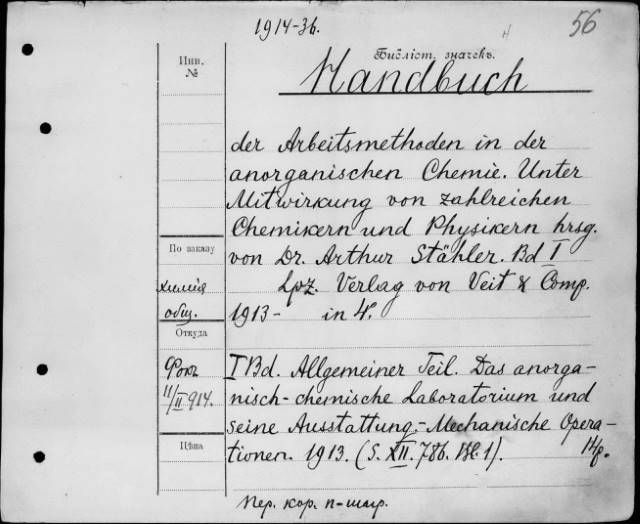 1914-36.
56
Инв.
№
Библіот. значекъ.
Handbuch
der Arbeitsmethoden in der
anorganischen Chemie. Unter
Mitwirkung von zahlreichen
Chemikern und Physikern hrsg.
von Dr. Arthur Stähler. Bd I
Lpz. Verlag von Veit & Comp.
1913- in 4°.
По заказу
химія
общ.
Откуда
Фокъ
11/II 914.
Цѣна
I Bd. Allgemeiner Teil. Das anorga-
nisch-chemische Laboratorium und
seine Ausstattung.- Mechanische Opera-
tionen. 1913. (S. XII. 786. Bl. 1).
Пер. кор. п-шагр.